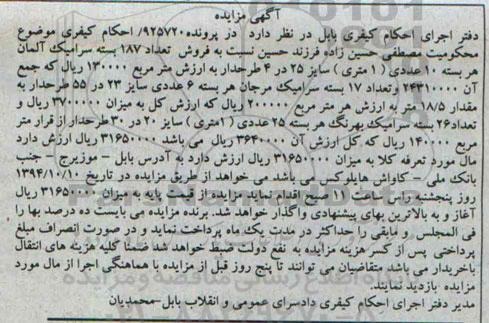 آگهی مزایده
دفتر اجرای احکام کیفری بابل در نظر دارد در پرونده ۹۲۵۷۲۰/ احکام کیفری موضوع
محکومیت مصطفی حسین زاده فرزند حسین نسبت به فروش تعداد ۱۸۷ بسته سرامیک آلمان
هر بسته ۱۰ عددی ( ۱ متری ) سایز ۲۵ در ۴ طرحدار به ارزش متر مربع ۱۳۰۰۰۰ ریال که جمع
آن ۲۴۳۱۰۰۰۰ وتعداد ۱۷ بسته سرامیک مرجان هر بسته ۶ عددی سایز ۲۳ در ۵۵ طرحدار به
مقدار ۱۸/۵ متر به ارزش هر متر مربع ۲۰۰۰۰۰ ریال که ارزش کل به میزان ۳۷۰۰۰۰۰ ریال و
تعداد۲۶ بسته سرامیک بهرنگ هر بسته ۲۵ عددی (۱متری) سایز ۲۰ در ۳۰ طرحدار از قرار متر
مربع ۱۴۰۰۰۰ ریال که کل ارزش آن ۳۶۴۰۰۰۰ ریال می باشد ۳۱۶۵۰۰۰۰ ریال ارزش دارد
مال مورد تعرفه کلا به میزان ۳۱۶۵۰۰۰۰ ریال ارزش دارد به آدرس بابل - موزیرج - جنب
بانک ملی - کاواش هایلوکس می باشد می خواهد از طریق مزایده در تاریخ ۱۳۹۴/۱۰/۱۰
روز پنجشنبه راس ساعت ۱۱ صبح اقدام نماید مزایده از قیمت پایه به میزان ۳۱۶۵۰۰۰۰ ریال
آغاز و به بالاترین بهای پیشنهادی واگذار خواهد شد. برنده مزایده می بایست ده درصد بها را
فی المجلس و مابقی را حداکثر در مدت یک ماه پرداخت نماید و در صورت انصراف مبلغ
پرداختی پس از کسر هزینه مزایده به نفع دولت ضبط خواهد شد ضمنا کلیه هزینه های انتقال
باخریدار می باشد متقاضیان می توانند تا پنج روز قبل از مزایده با هماهنگی اجرا از مال مورد
مزایده بازدید نمایند.
مدیر دفتر اجرای احکام کیفری دادسرای عمومی و انقلاب بابل-محمدیان